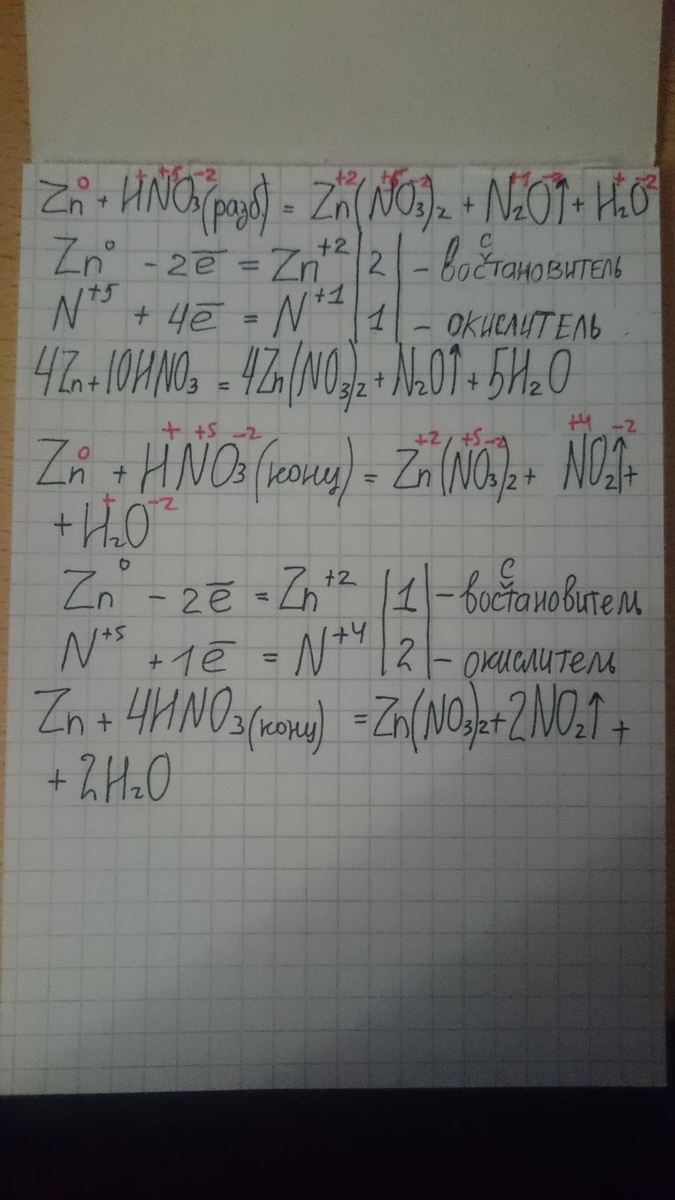 Zn⁰ + H⁺N⁺⁵O₃⁻²(разб) = Zn⁺²(N⁺⁵O₃⁻²)₂ + N₂⁺¹O⁻²↑ + H₂⁺O⁻²
Zn⁰ - 2e̅ = Zn⁺² | 2 | - восстановитель
N⁺⁵ + 4e̅ = N⁺¹ | 1 | - окислитель
4Zn + 10HNO₃ = 4Zn(NO₃)₂ + N₂O↑ + 5H₂O
Zn⁰ + H⁺N⁺⁵O₃⁻²(конц) = Zn⁺²(N⁺⁵O₃⁻²)₂ + N⁺⁴O₂⁻²↑ +
+ H₂⁺O⁻²
Zn⁰ - 2e̅ = Zn⁺² | 1 | - восстановитель
N⁺⁵ + 1e̅ = N⁺⁴ | 2 | - окислитель
Zn + 4HNO₃(конц) = Zn(NO₃)₂ + 2NO₂↑ +
+ 2H₂O